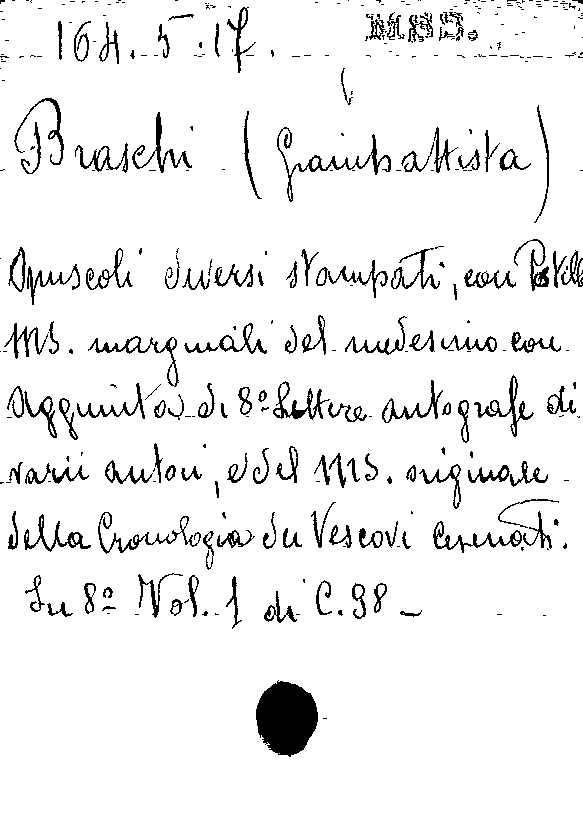 164.5.17. MSS.
Braschi (Giambattista)
Opuscoli diversi stampati, con Postille
MS. marginali del medesimo con
Aggiunta di 8º Lettere autografe di
varii autori, e del MS. originale
della Cronologia dei Vescovi Cesenati.
In 8º Vol. 1 di C. 98 -